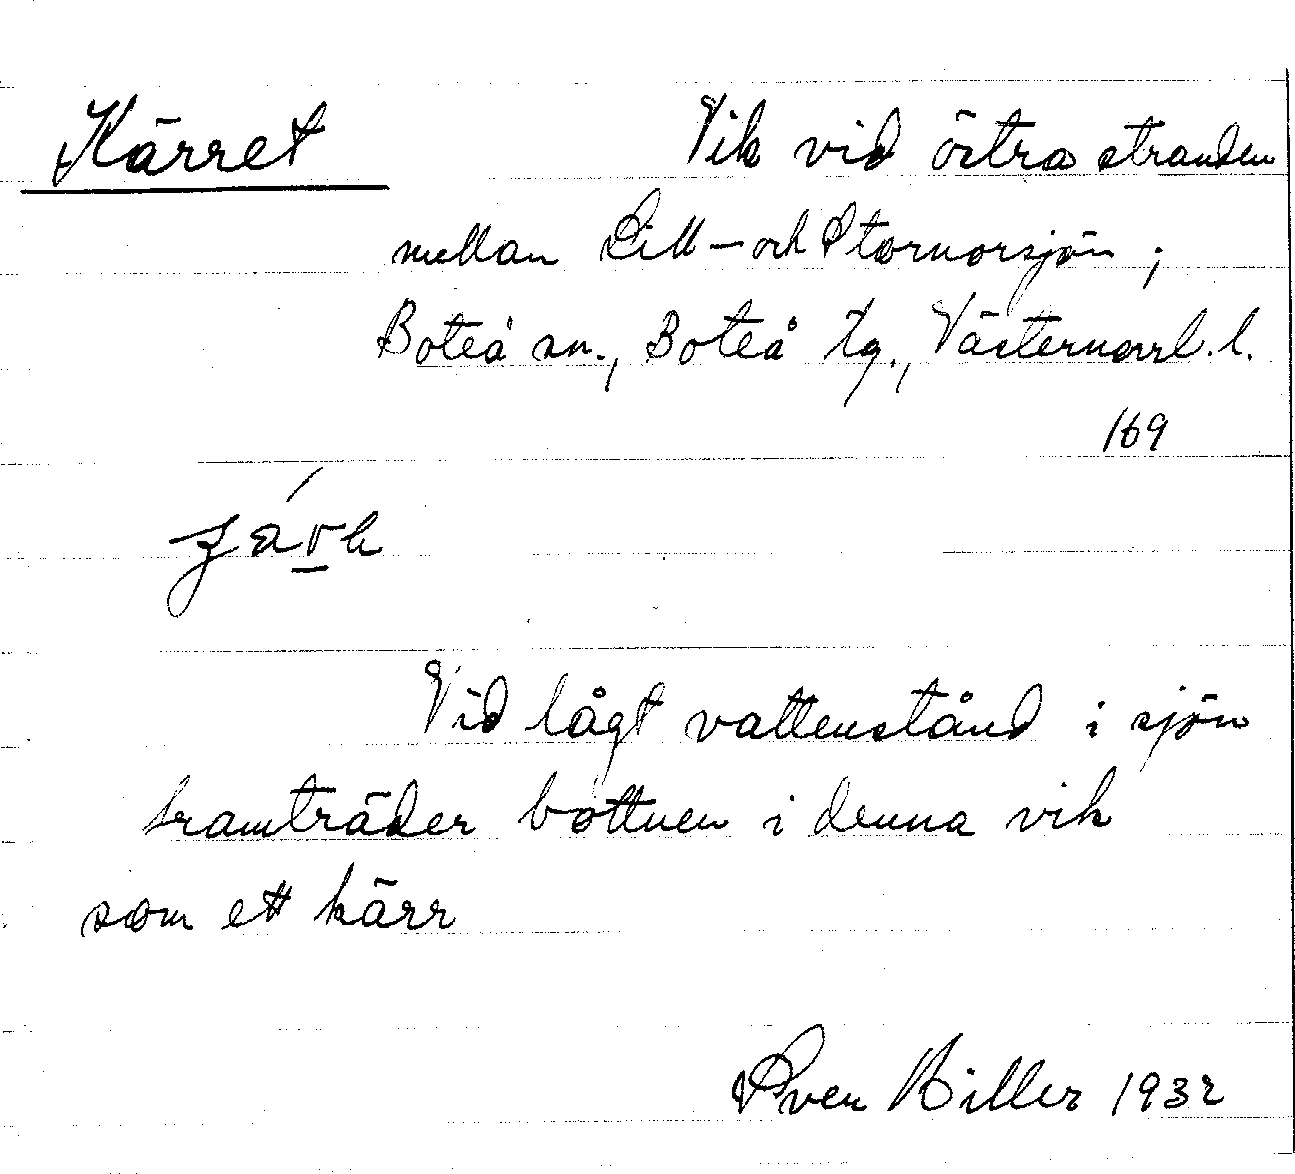 Kärret Vik vid östra stranden
mellan Lill- och Stornorsjön ;
Boteå sn., Boteå tg., Västernorrl. l.
169
Vid lågt vattenstånd i sjön
framträder bottnen i denna vik
som ett kärr
Sven Biller 1932